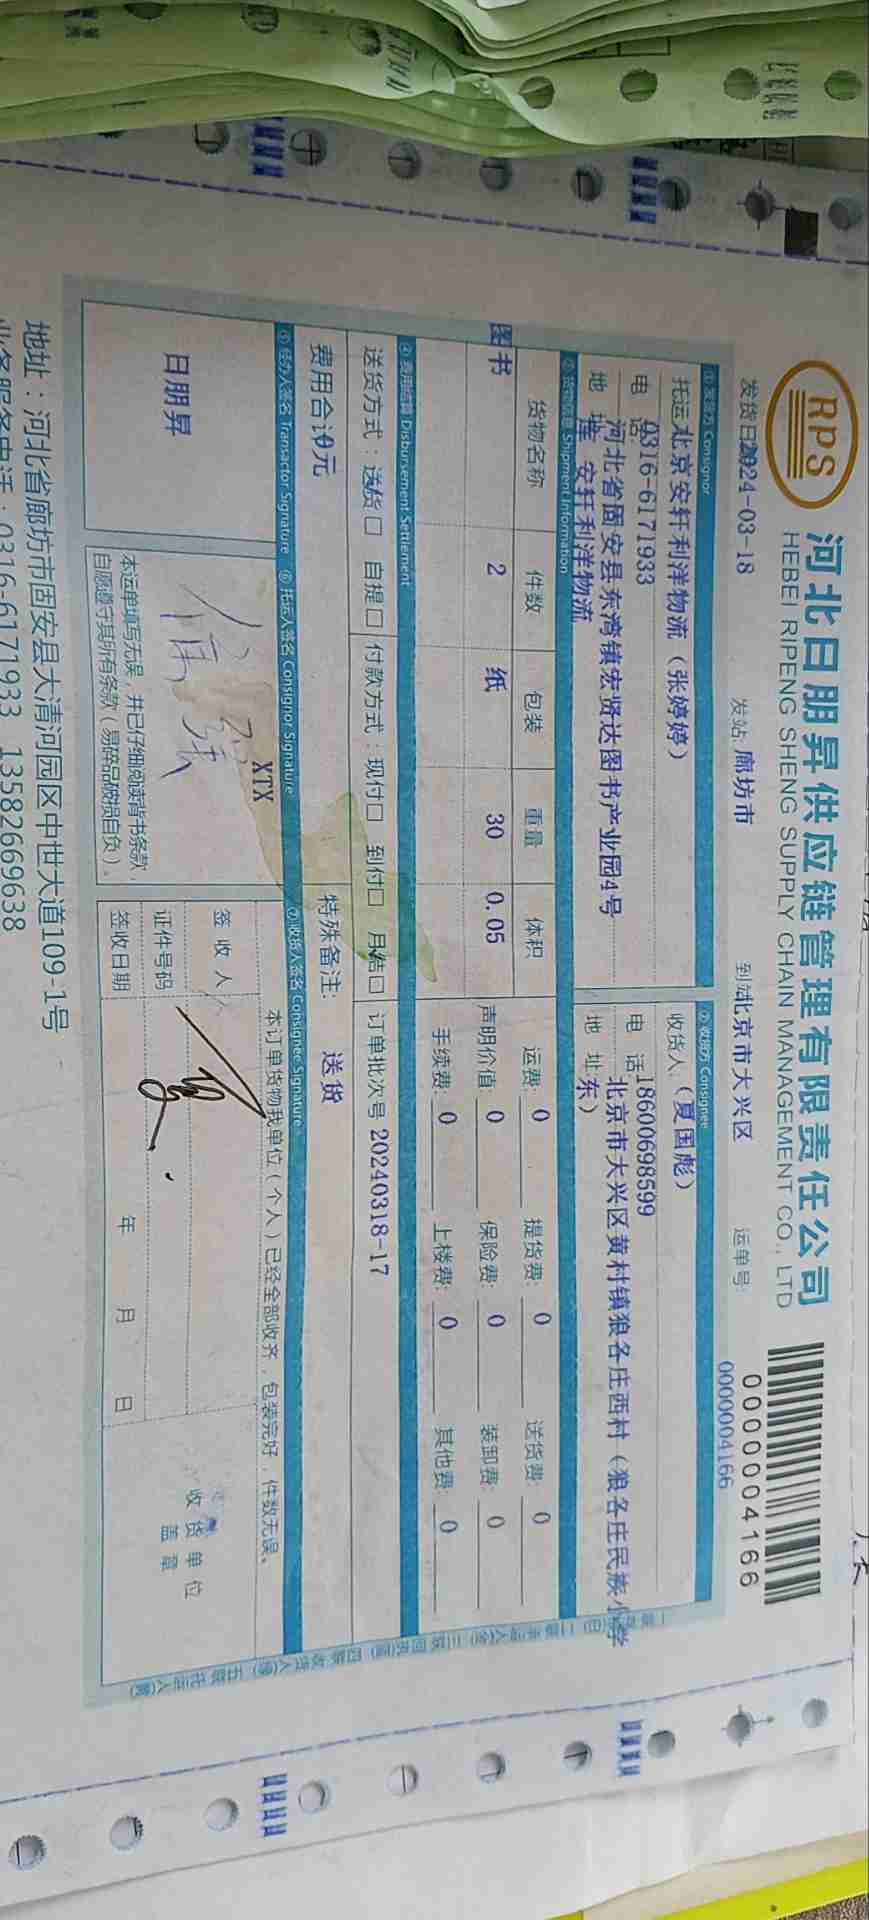 RPS
河北日朋昇供应链管理有限责任公司
HEBEI RIPENG SHENG SUPPLY CHAIN MANAGEMENT CO., LTD
0000004166
发货日期2024-03-18 发站 廊坊市 到站北京市大兴区 运单号: 0000004166
① 发货方 Consignor
② 收货方 Consignee
托运人北京安轩利洋物流（张婷婷）
收货人（夏国彪）
电 话0316-6171933
电 话18600698599
地 址 河北省固安县东湾镇宏贤达图书产业园4号
安轩利洋物流
地 址 北京市大兴区黄村镇狼各庄西村（狼各庄民族小学
东）
③ 货物信息 Shipment Information
货物名称 件数 包装 重量 体积
图书 2 纸 30 0.05
运费: 0 提货费: 0 送货费: 0
声明价值: 0 保险费: 0 装卸费: 0
手续费: 0 上楼费: 0 其他费: 0
④ 费用结算 Disbursement Settlement
送货方式：送货□ 自提□ 付款方式：现付□ 到付□ 月结□ 订单批次号 20240318-17
费用合计0元 特殊备注: 送货
⑤ 经办人签名 Transactor Signature ⑥ 托运人签名 Consignor Signature ⑦ 收货人签名 Consignee Signature
日朋昇
XTX
本运单填写无误，并已仔细阅读背书条款，
自愿遵守其所有条款（易碎品破损自负）。
本订单货物我单位（个人）已经全部收齐，包装完好，件数无误。
签 收 人
证件号码
签收日期 年 月 日
收 货 单 位
盖 章
地址：河北省廊坊市固安县大清河园区中世大道109-1号
业务服务电话：0316-6171933 13582669638